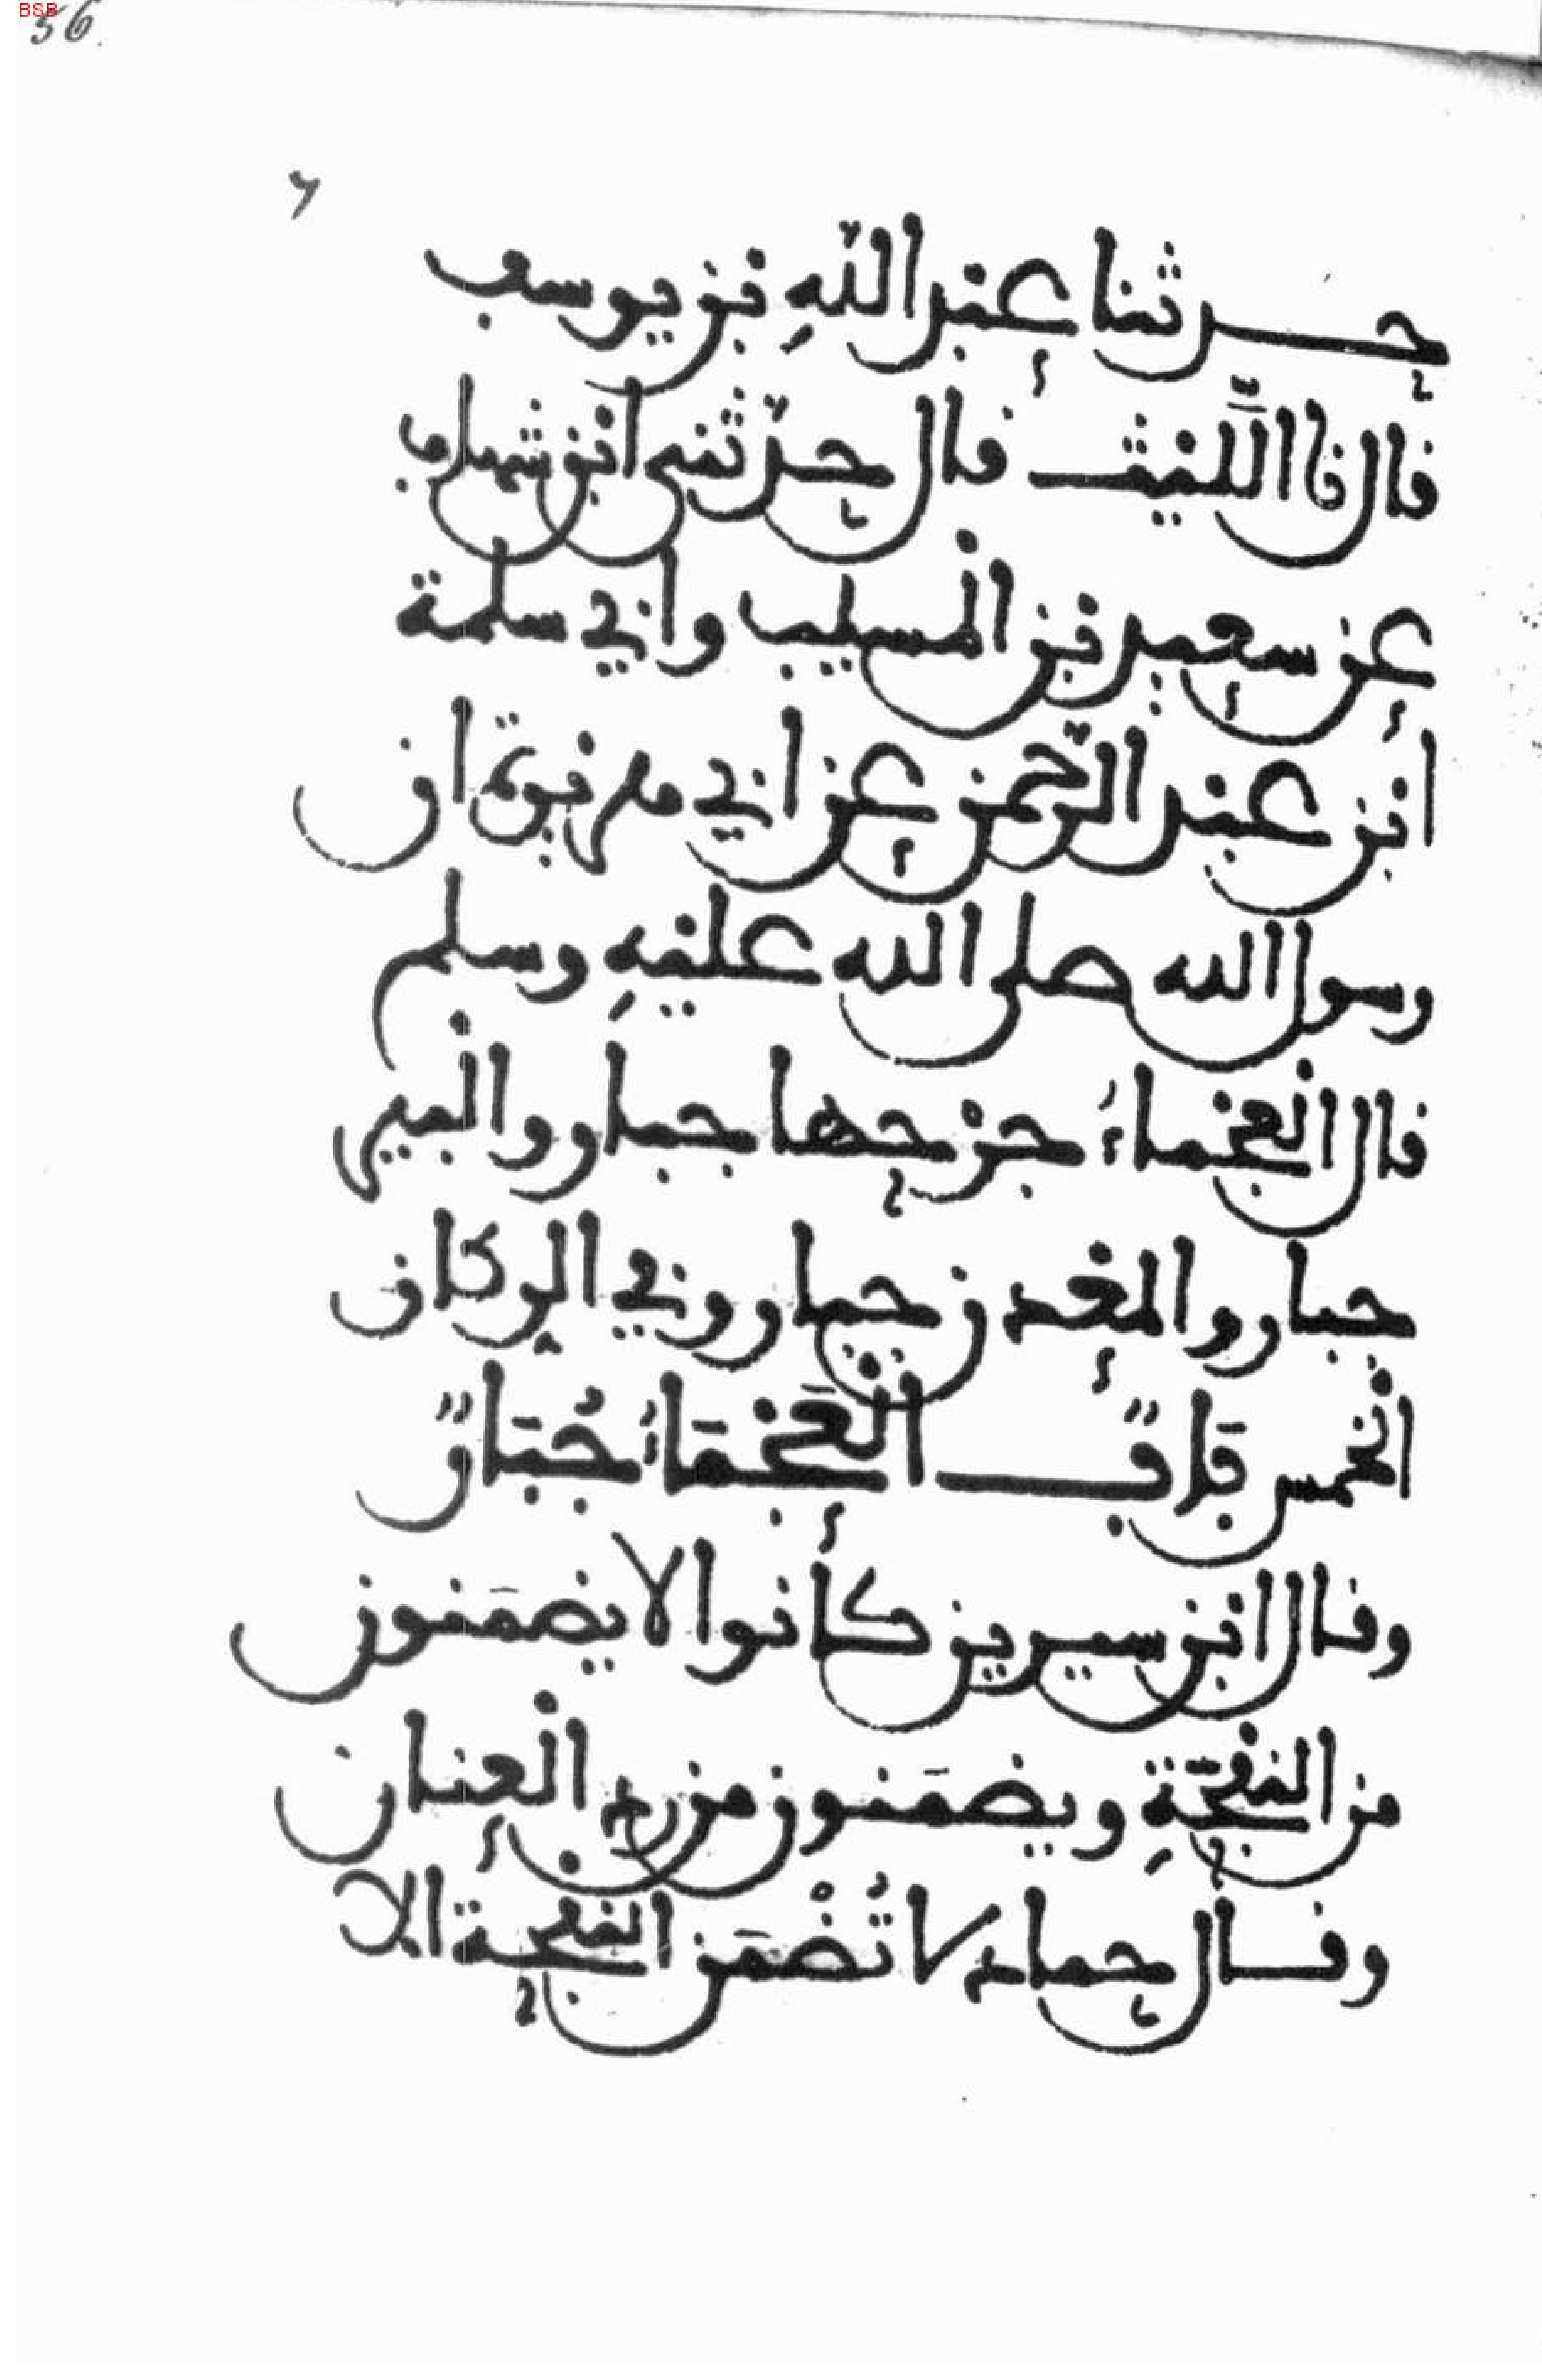 BSB
56.
حدثنا عبد اللّهِ بن يوسف
قال نا اللَّيث قال حدّثني ابن شهاب
عن سعيد بن الْمسيب وابي سلمة
ابن عبد الرّحمن عن ابي هريرة ان
رسول الله صلى الله عليهِ وسلم
قال الْعجماءُ جرْحها جبار والْبير
جبار والمعدن جبار وفي الركاز
الْخمس بابٌ الْعَجْمَاءُ جُبَارٌ
وقال ابن سيرين كانوا لا يضمَنون
من النفْحَةِ ويضمَنون من رد الْعِنان
وقال حماد لا تُضْمَن النفحة الا